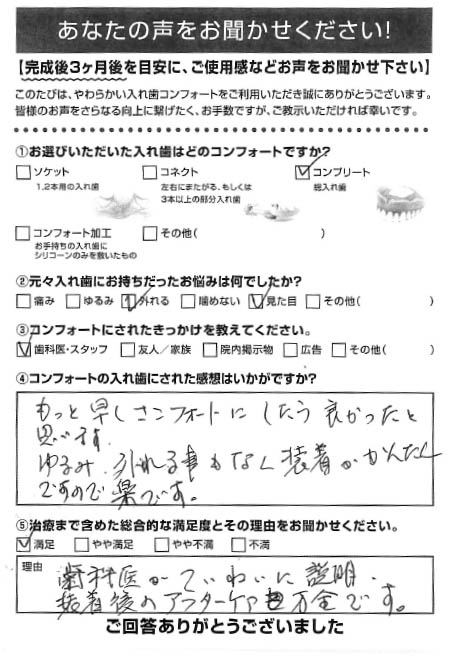 あなたの声をお聞かせください!
【完成後3ヶ月後を目安に、ご使用感などお声をお聞かせ下さい】
このたびは、やわらかい入れ歯コンフォートをご利用いただき誠にありがとうございます。
皆様のお声をさらなる向上に繋げたく、お手数ですが、ご教示いただければ幸いです。
①お選びいただいた入れ歯はどのコンフォートですか?
□ソケット
1,2本用の入れ歯
□コネクト
左右にまたがる、もしくは
3本以上の部分入れ歯
☑コンプリート
総入れ歯
□コンフォート加工
お手持ちの入れ歯に
シリコーンのみを敷いたもの
□その他( )
②元々入れ歯にお持ちだったお悩みは何でしたか?
□痛み □ゆるみ ☑外れる □噛めない ☑見た目 □その他( )
③コンフォートにされたきっかけを教えてください。
☑歯科医・スタッフ □友人/家族 □院内掲示物 □広告 □その他( )
④コンフォートの入れ歯にされた感想はいかがですか?
もっと早しコンフォートにしたら良かったと
思います。
ゆるみ、外れる事もなく装着がかんたん
ですので楽です。
⑤治療まで含めた総合的な満足度とその理由をお聞かせください。
☑満足 □やや満足 □やや不満 □不満
理由
歯科医がていねいに説明、
装着後のアフターケアも万全です。
ご回答ありがとうございました